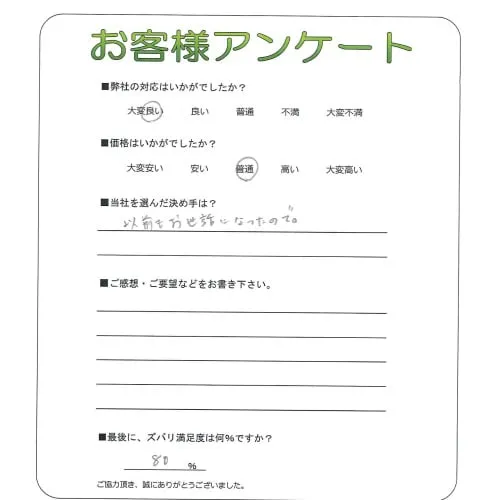 お客様アンケート
■弊社の対応はいかがでしたか？
大変良い 良い 普通 不満 大変不満
■価格はいかがでしたか？
大変安い 安い 普通 高い 大変高い
■当社を選んだ決め手は？
以前もお世話になったので。
■ご感想・ご要望などをお書き下さい。
■最後に、ズバリ満足度は何%ですか？
80 %
ご協力頂き、誠にありがとうございました。